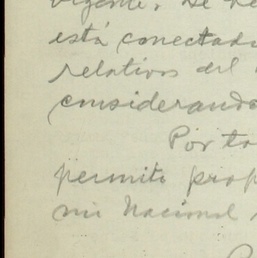 vigente. De
está conectad
relativos del
considerando
Por ta
permito prop
mi Nacional